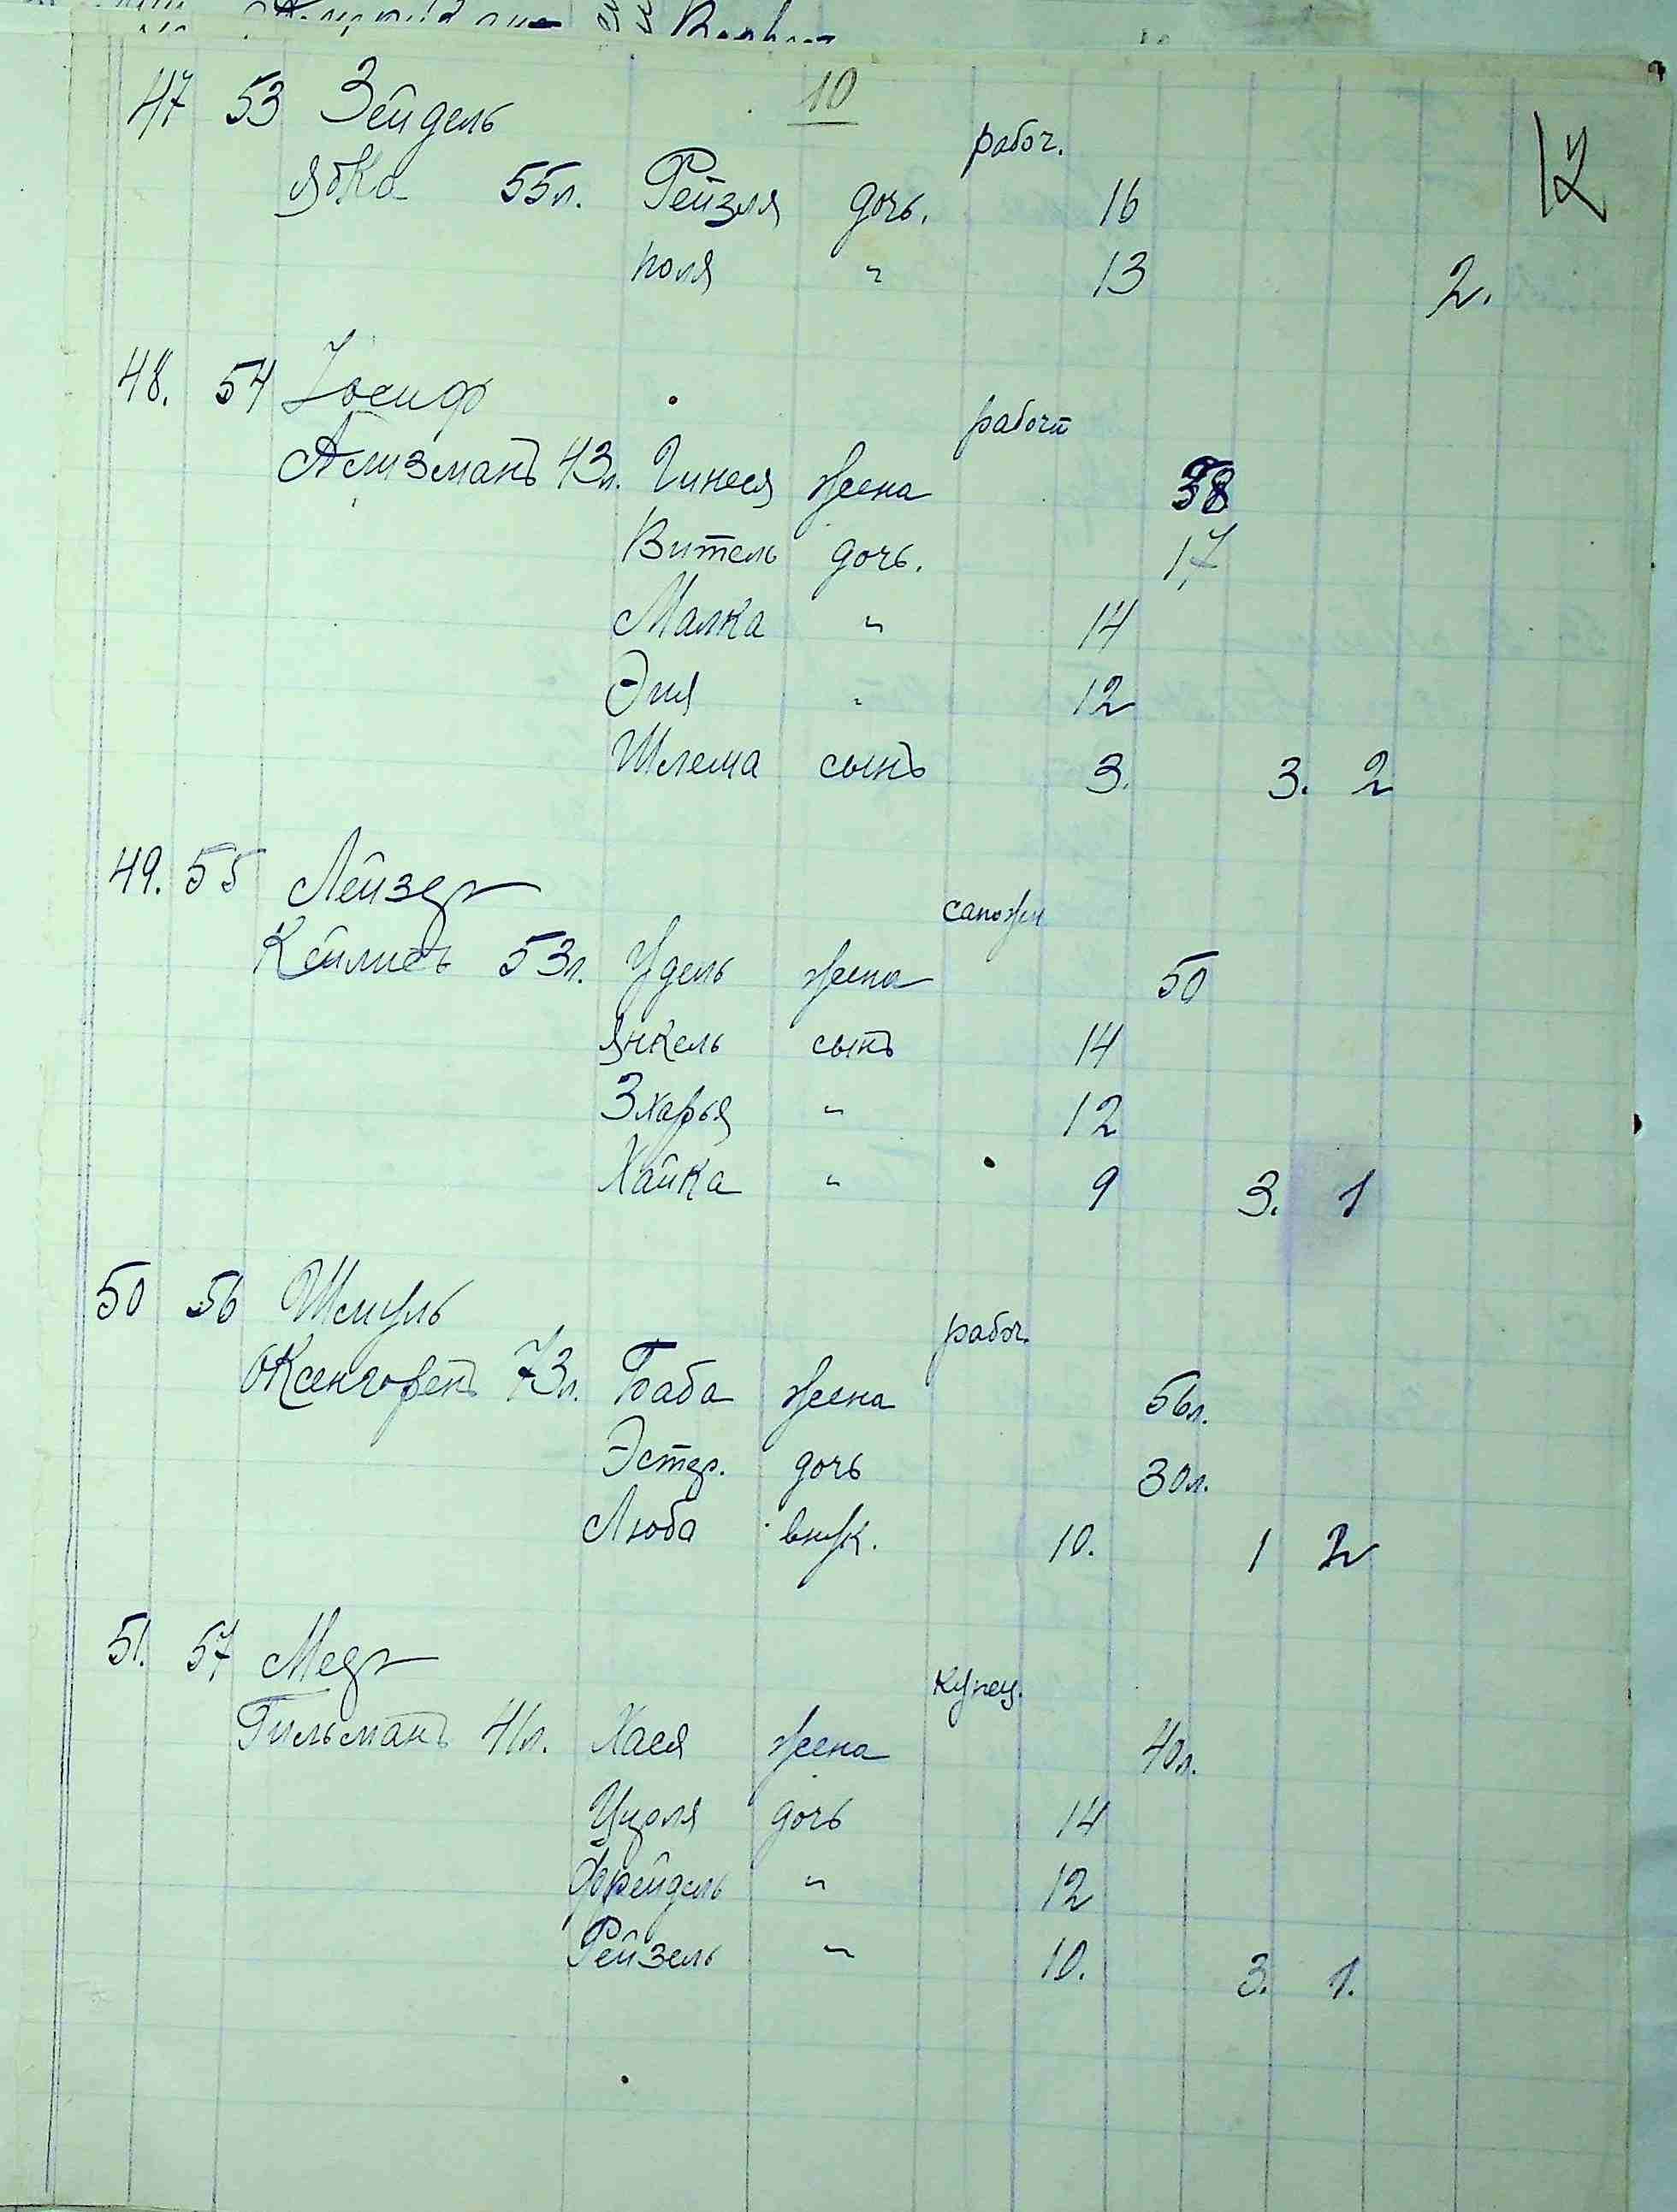 10
47 53 Зейдель
рабоч.
Ябко 55л. Рейзля дочь. 16
поля " 13 2.
48. 54 Іосиф
рабочй
Ализманъ 43л. Гинеся жена 38
Витель дочь. 17
Малка " 14
Эня " 12
Шлема сынъ 3. 3. 2
49. 55 Лейзер
сапожн
Кейлисъ 53л. Удель жена 50
Янкель сынъ 14
Зхарья " 12
Хайка " 9 3. 1
50 56 Шмуль
рабоч.
Оксенгоренъ 73л. Баба жена 56л.
Эстер. дочь 30л.
Люба внук. 10. 1 2
51. 57 Меер
купец.
Гильманъ 41л. Хася жена 40л.
Цирля дочь 14
Фрейдель " 12
Рейзель " 10. 3. 1.